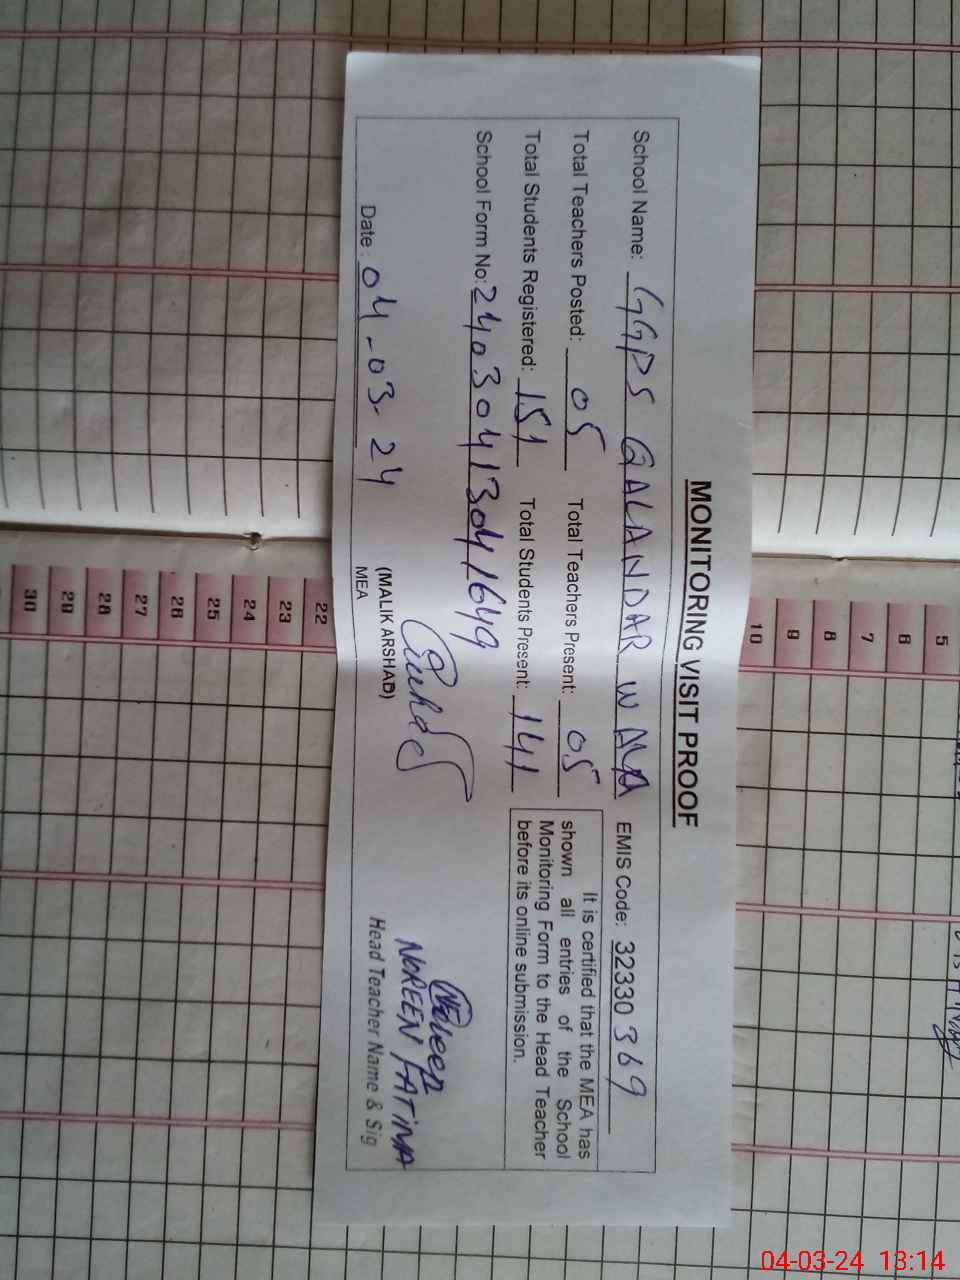 MONITORING VISIT PROOF
School Name: GGPS QALANDAR W EMIS Code: 32330 369
Total Teachers Posted: 05 Total Teachers Present: 05
Total Students Registered: 151 Total Students Present: 141
It is certified that the MEA has
shown all entries of the School
Monitoring Form to the Head Teacher
before its online submission.
School Form No: 24030413041649
Date: 04-03-24
(MALIK ARSHAD)
MEA
Noreen
NOREEN FATIMA
Head Teacher Name & Sig
5
6
7
8
9
10
22
23
24
25
26
27
28
29
30
04-03-24 13:14